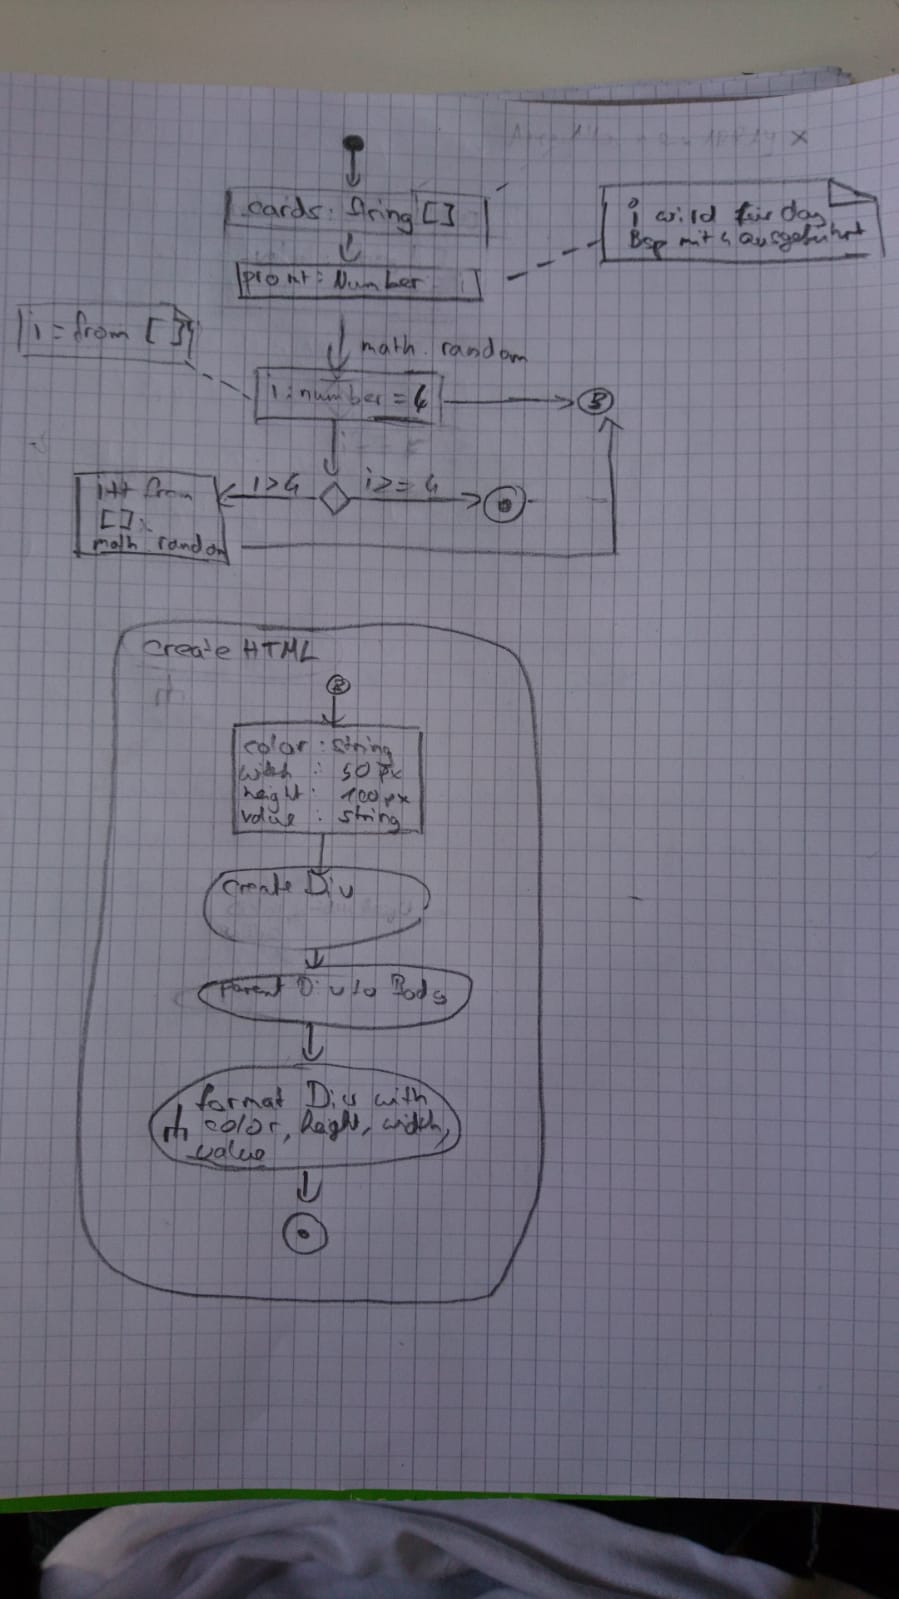 cards: String []
i wird für das
Bsp mit 4 ausgeführt
promt: Number
i = from []
math. random
i: number = 4
B
i>4
i>= 4
i++ from
[];
math random
create HTML
B
color : string
widh : 50 px
height : 100px
value : string
create Div
Parent Div to Body
format Divs with
color, height, width,
value